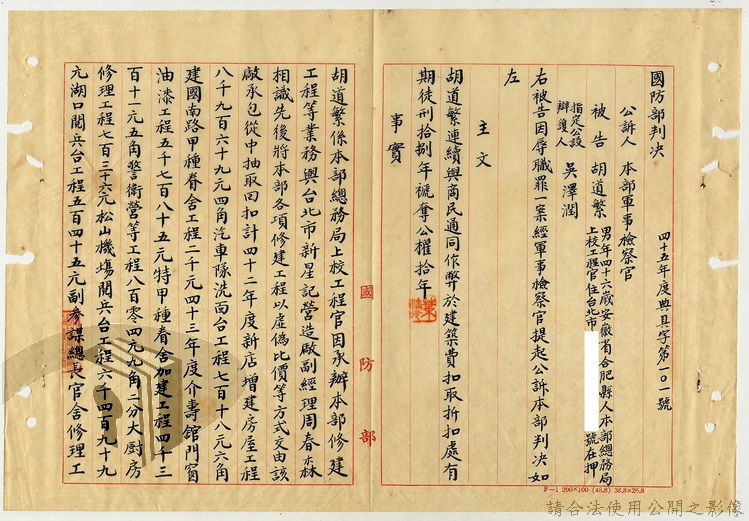 國防部判決
四十五年度典具字第一〇一號
公訴人 本部軍事檢察官
被告 胡道繁 男年四十六歲安徽省合肥縣人本部總務局
上校工程官住台北市 號在押
指定公設
辯護人 吳澤潤
右被告因辱職罪一案經軍事檢察官提起公訴本部判決如
左
主文
胡道繁連續與商民通同作弊於建築費扣取折扣處有
期徒刑拾捌年褫奪公權拾年
事實
國防部
胡道繁係本部總務局上校工程官因承辦本部修建
工程等業務與台北市新星記營造廠副經理周春森
相識先後將本部各項修建工程以虛偽比價等方式交由該
廠承包從中抽取回扣計四十二年度新店增建房屋工程
八千九百六十九元四角汽車隊洗面台工程七百十八元六角
建國南路甲種眷舍工程二千元四十三年度介壽館門窗
油漆工程五千七百八十五元特甲種眷舍加建工程四千三
百十一元五角警衛營等工程八百零四元九角二分大厨房
修理工程七百三十六元松山機塲閱兵台工程六千四百九十九
元湖口閱兵台工程五百四十五元副參謀總長官舍修理工
F—1 200×100 (45.8) 38.8×26.8
請合法使用公開之影像